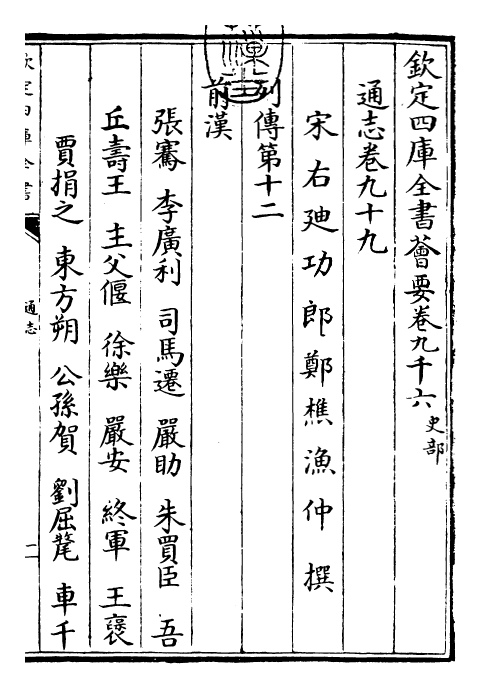 欽定四庫全書薈要卷九千六 史部
通志卷九十九
宋右迪功郎鄭樵漁仲撰
列傳第十二
前漢
張騫 李廣利 司馬遷 嚴助 朱買臣 吾
丘壽王 主父偃 徐樂 嚴安 終軍 王襃
賈捐之 東方朔 公孫賀 劉屈氂 車千
通志